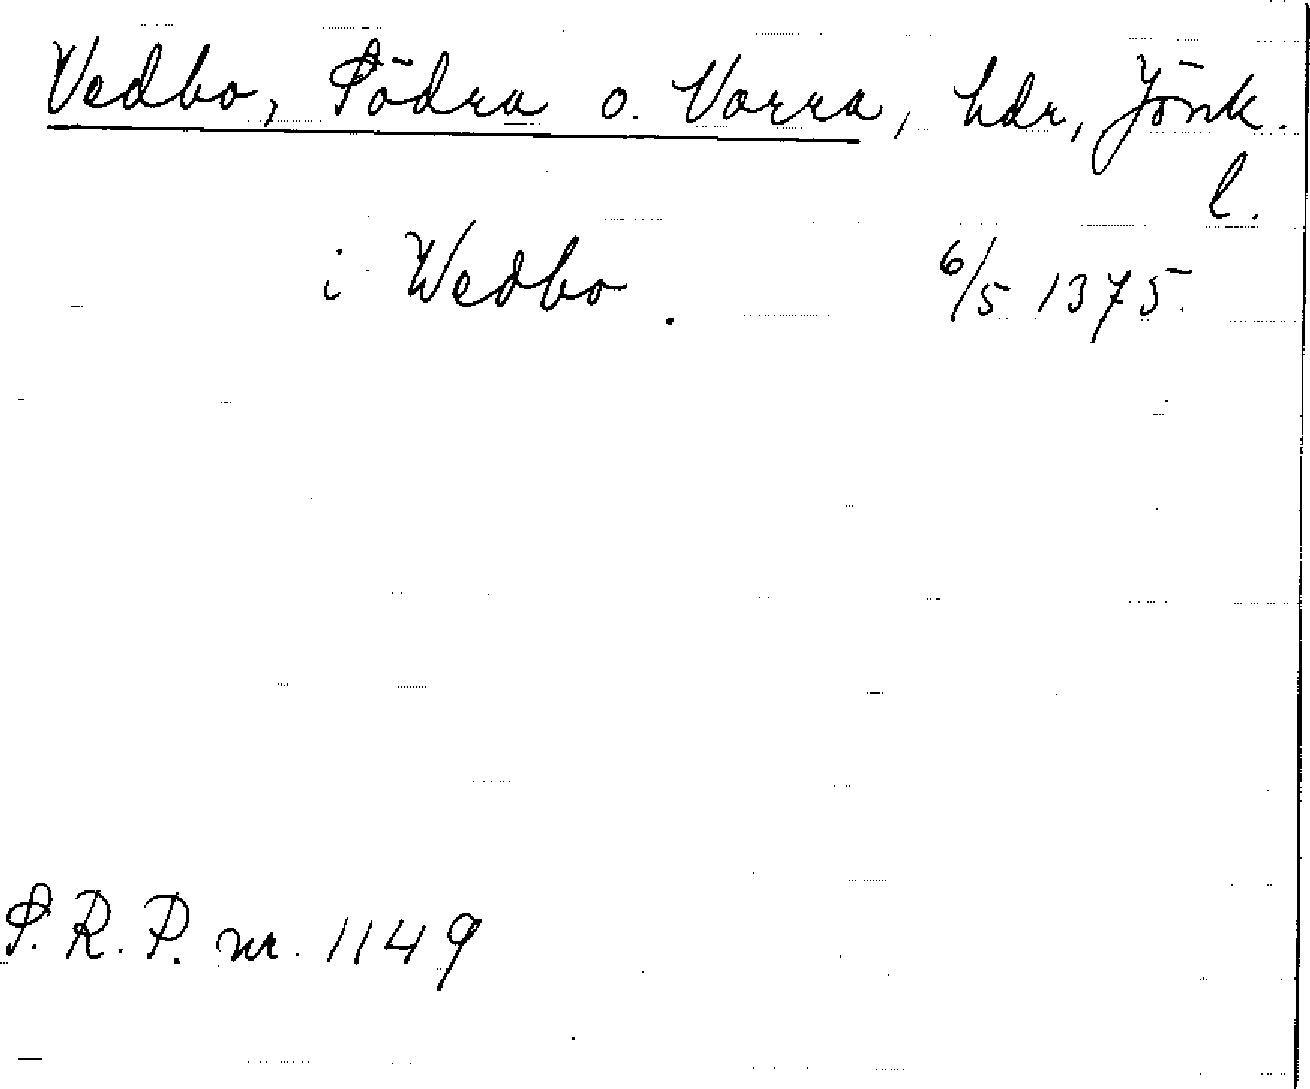 Vedbo, Södra o. Norra, hdr, Jönk.
l.
i Wedbo. 6/5 1375.
S.R.P. nr. 1149